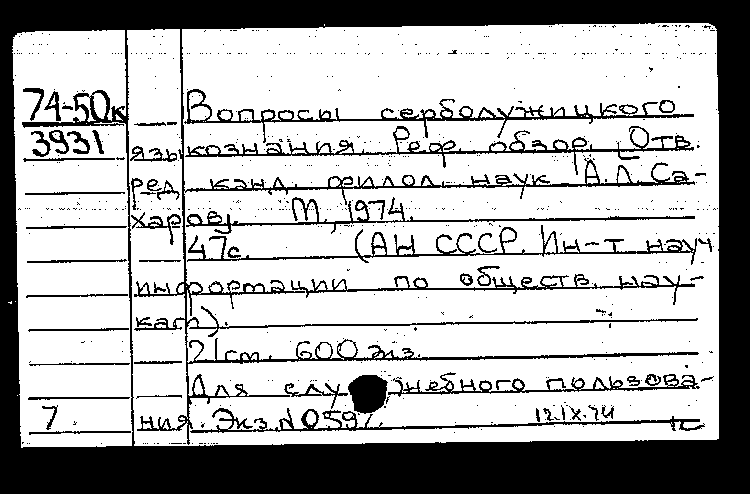 74-50к Вопросы серболужицкого
3931 языкознания. Реф. обзор. [Отв.
ред. канд. филол. наук А.Л. Са-
харов]. М., 1974.
47с. (АН СССР. Ин-т науч.
информации по обществ. нау-
кам).
21см. 600 экз.
Для служебного пользова-
7. ния. Экз. №0597. 12.IX.74